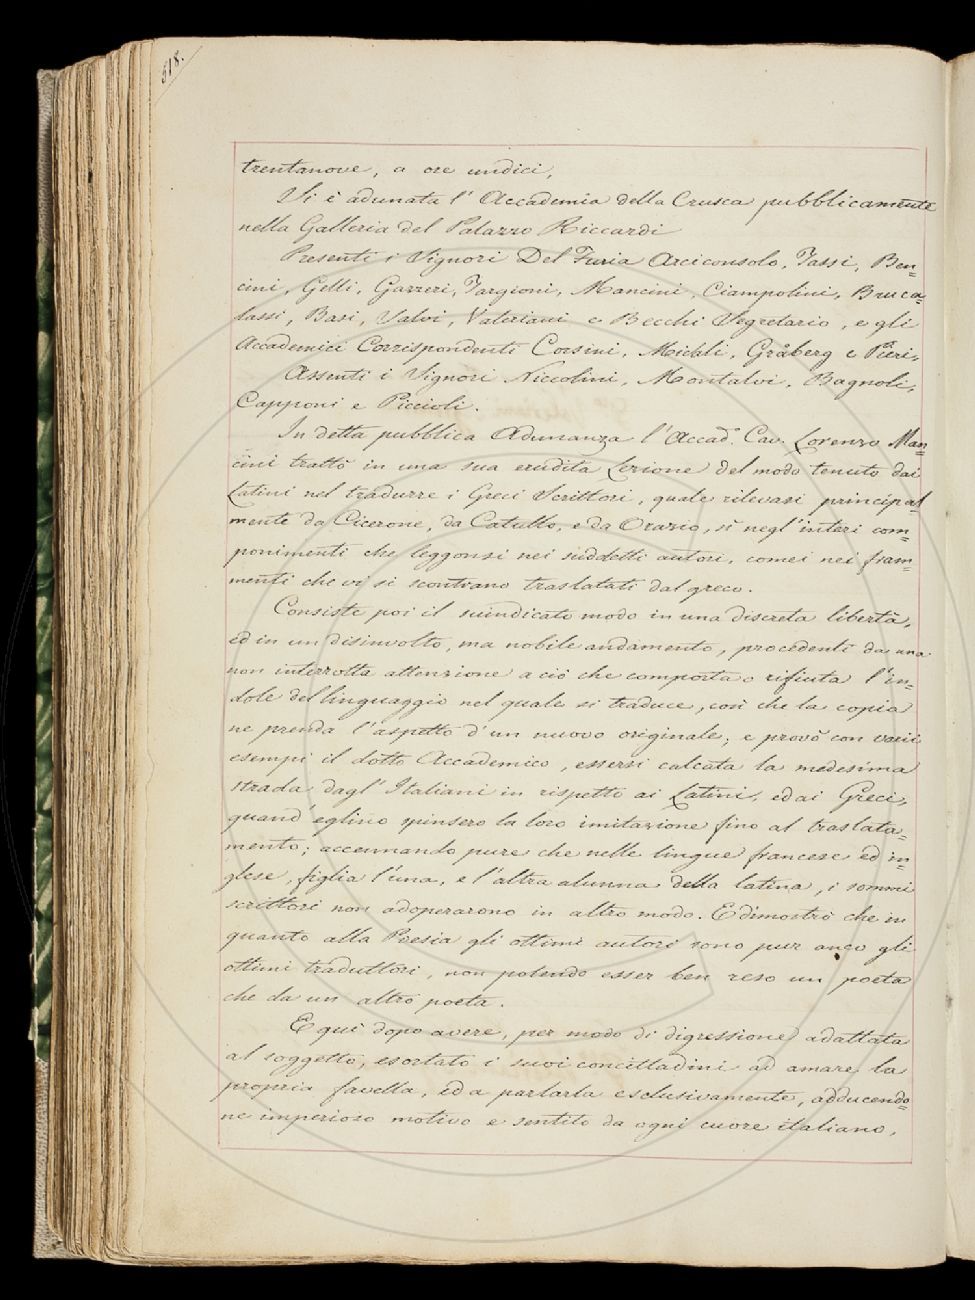 518.
trentanove, a ore undici,
Si è adunata l'Accademia della Crusca pubblicamente
nella Galleria del Palazzo Riccardi
Presenti i Signori Del Furia Arciconsolo, Tassi, Ben=
cini, Gelli, Gazzeri, Targioni, Mancini, Ciampolini, Bruca=
lassi, Basi, Salvi, Valeriani e Becchi Segretario, e gli
Accademici Corrispondenti Corsini, Micheli, Gråberg e Pieri,
Assenti i Signori Niccolini, Montalvi, Bagnoli,
Capponi e Piccioli.
In detta pubblica Adunanza l'Accad.º Cav. Lorenzo Man=
cini trattò in una sua erudita Lezione del modo tenuto dai
Latini nel tradurre i Greci Scrittori, quale rilevasi principal
mente da Cicerone, da Catullo, e da Orazio, sì negl'interi com=
ponimenti che leggonsi nei suddetti autori, come nei fram=
menti che vi si scontrano traslatati dal greco.
Consiste poi il suindicato modo in una discreta libertà,
ed in un disinvolto, ma nobile andamento, procedenti da una
non interrotta attenzione a ciò che comporta o rifiuta l'in=
dole del linguaggio nel quale si traduce, così che la copia
ne prenda l'aspetto d'un nuovo originale; e provò con varii
esempi il dotto Accademico, essersi calcata la medesima
strada dagl'Italiani in rispetto ai Latini, ed ai Greci,
quand'eglino spinsero la loro imitazione fino al traslata=
mento; accennando pure che nelle lingue francese ed in=
glese, figlia l'una, e l'altra alunna della latina, i sommi
scrittori non adoperarono in altro modo. E dimostrò che in
quanto alla Poesia gli ottimi autori sono pur anco gli
ottimi traduttori, non potendo esser ben reso un poeta
che da un altro poeta.
E qui dopo avere, per modo di digressione adattata
al soggetto, esortato i suoi concittadini ad amare la
propria favella, ed a parlarla esclusivamente, adducendo=
ne imperioso motivo e sentito da ogni cuore italiano,